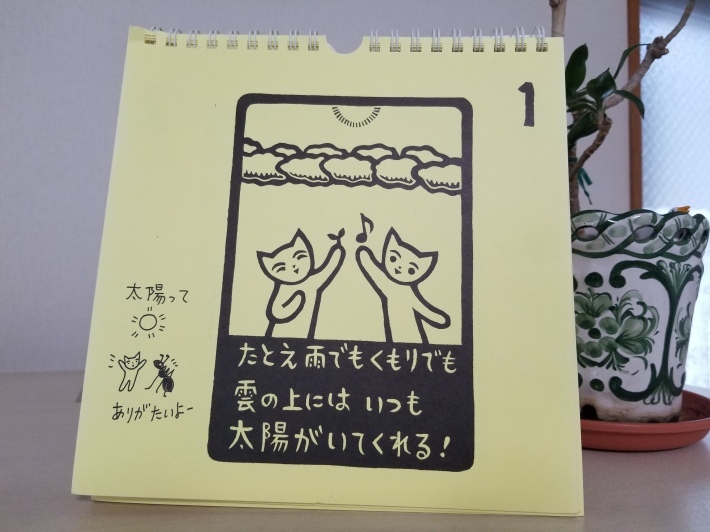 1
たとえ雨でもくもりでも
雲の上には いつも
太陽がいてくれる!
太陽って
ありがたいよー